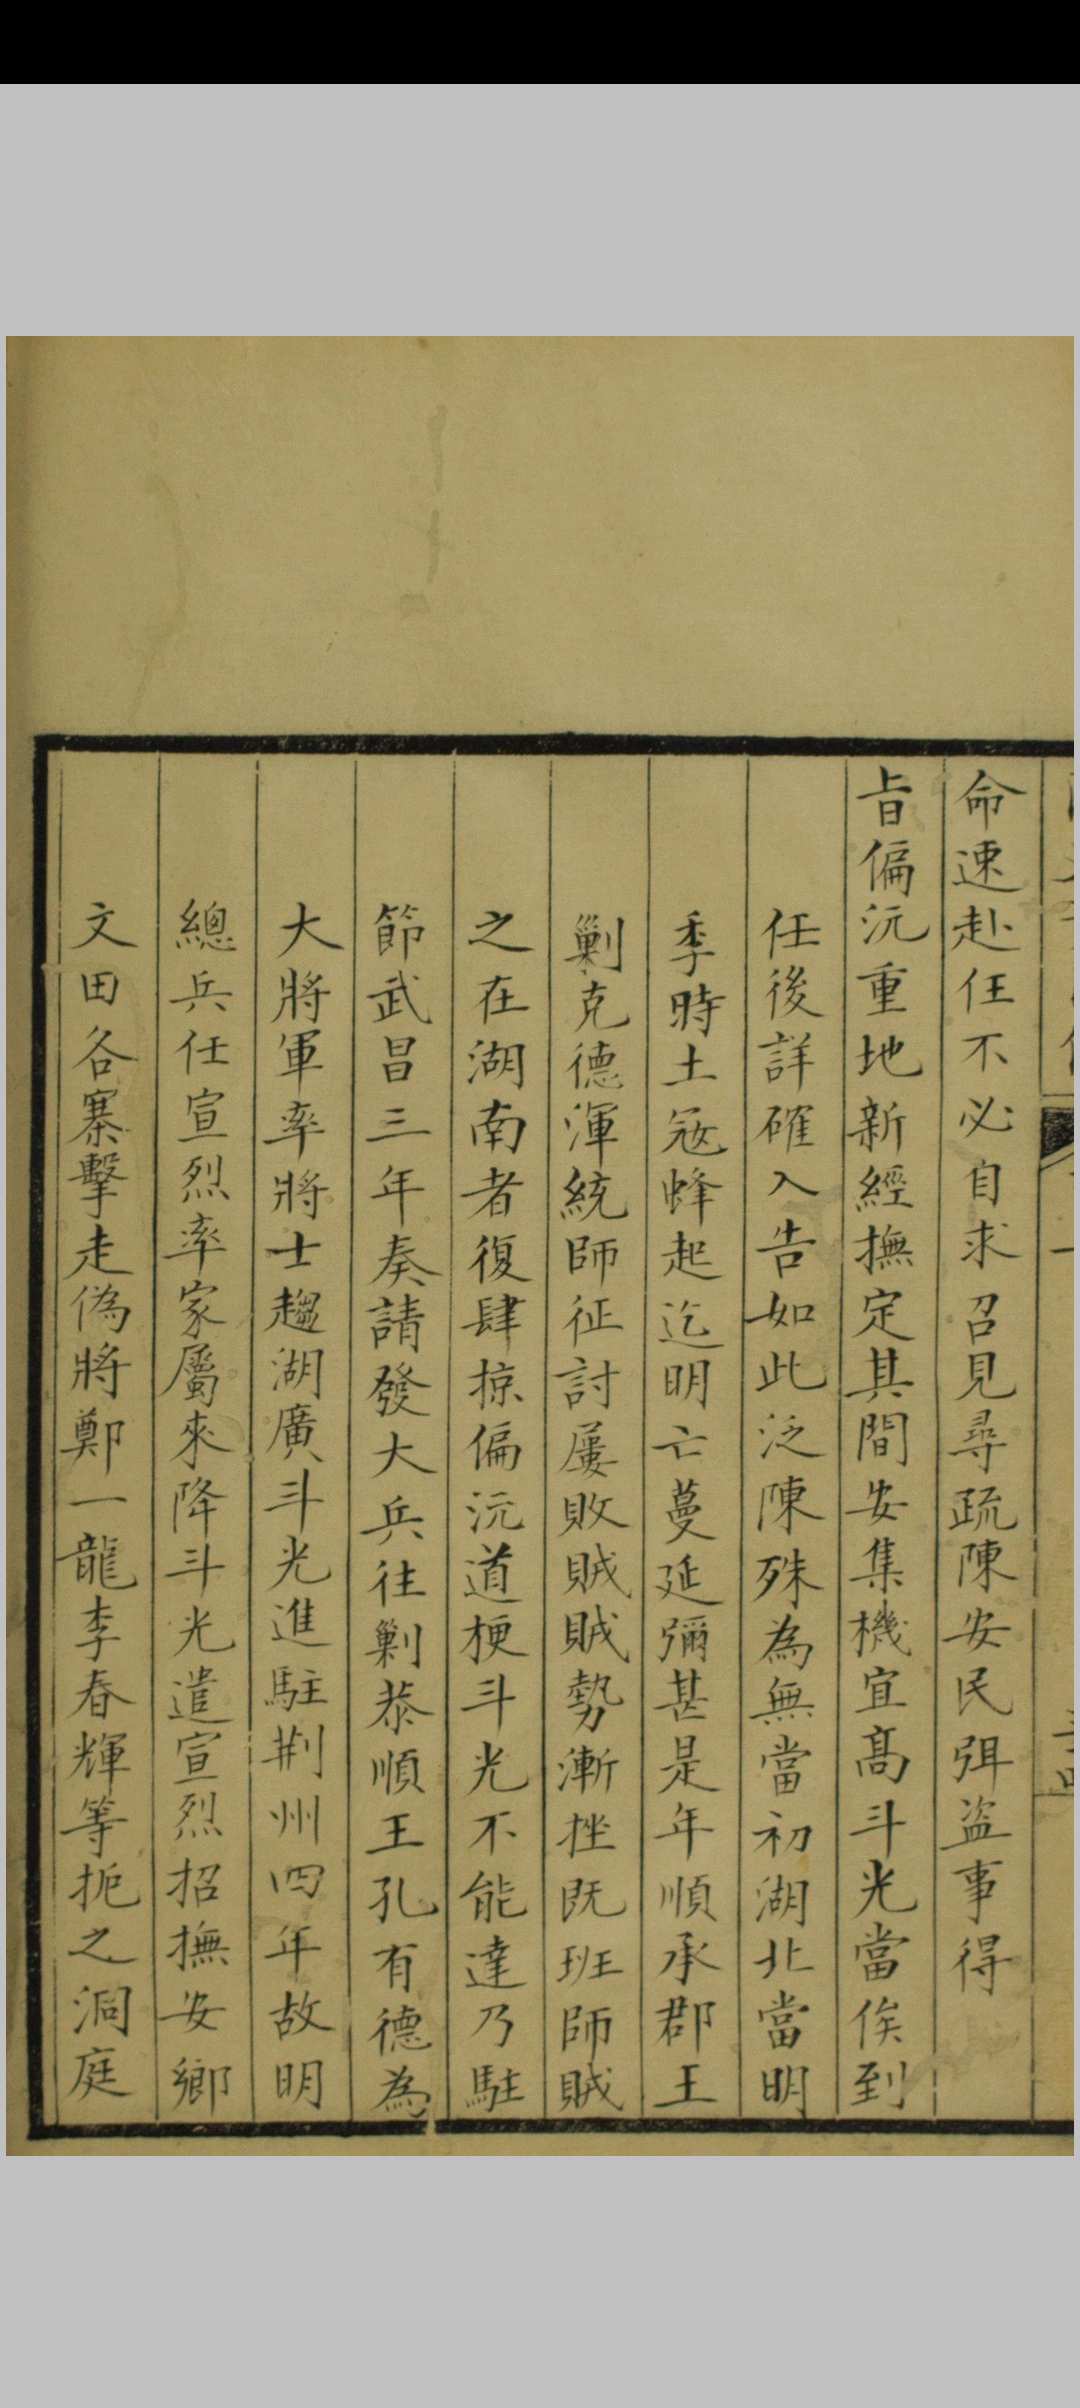 命速赴任不必自求召見尋疏陳安民弭盜事得
旨偏沅重地新經撫定其間安集機宜髙斗光當俟到
任後詳確入告如此泛陳殊為無當初湖北當明
季時土冦蜂起迄明亡蔓延彌甚是年順承郡王
剿克德渾統師征討屢敗賊賊勢漸挫既班師賊
之在湖南者復肆掠偏沅道梗斗光不能達乃駐
節武昌三年奏請發大兵往剿恭順王孔有德為
大將軍率將士趨湖廣斗光進駐荆州四年故明
總兵任宣烈率家屬來降斗光遣宣烈招撫安鄉
文田各寨擊走偽將鄭一龍李春輝等扼之洞庭